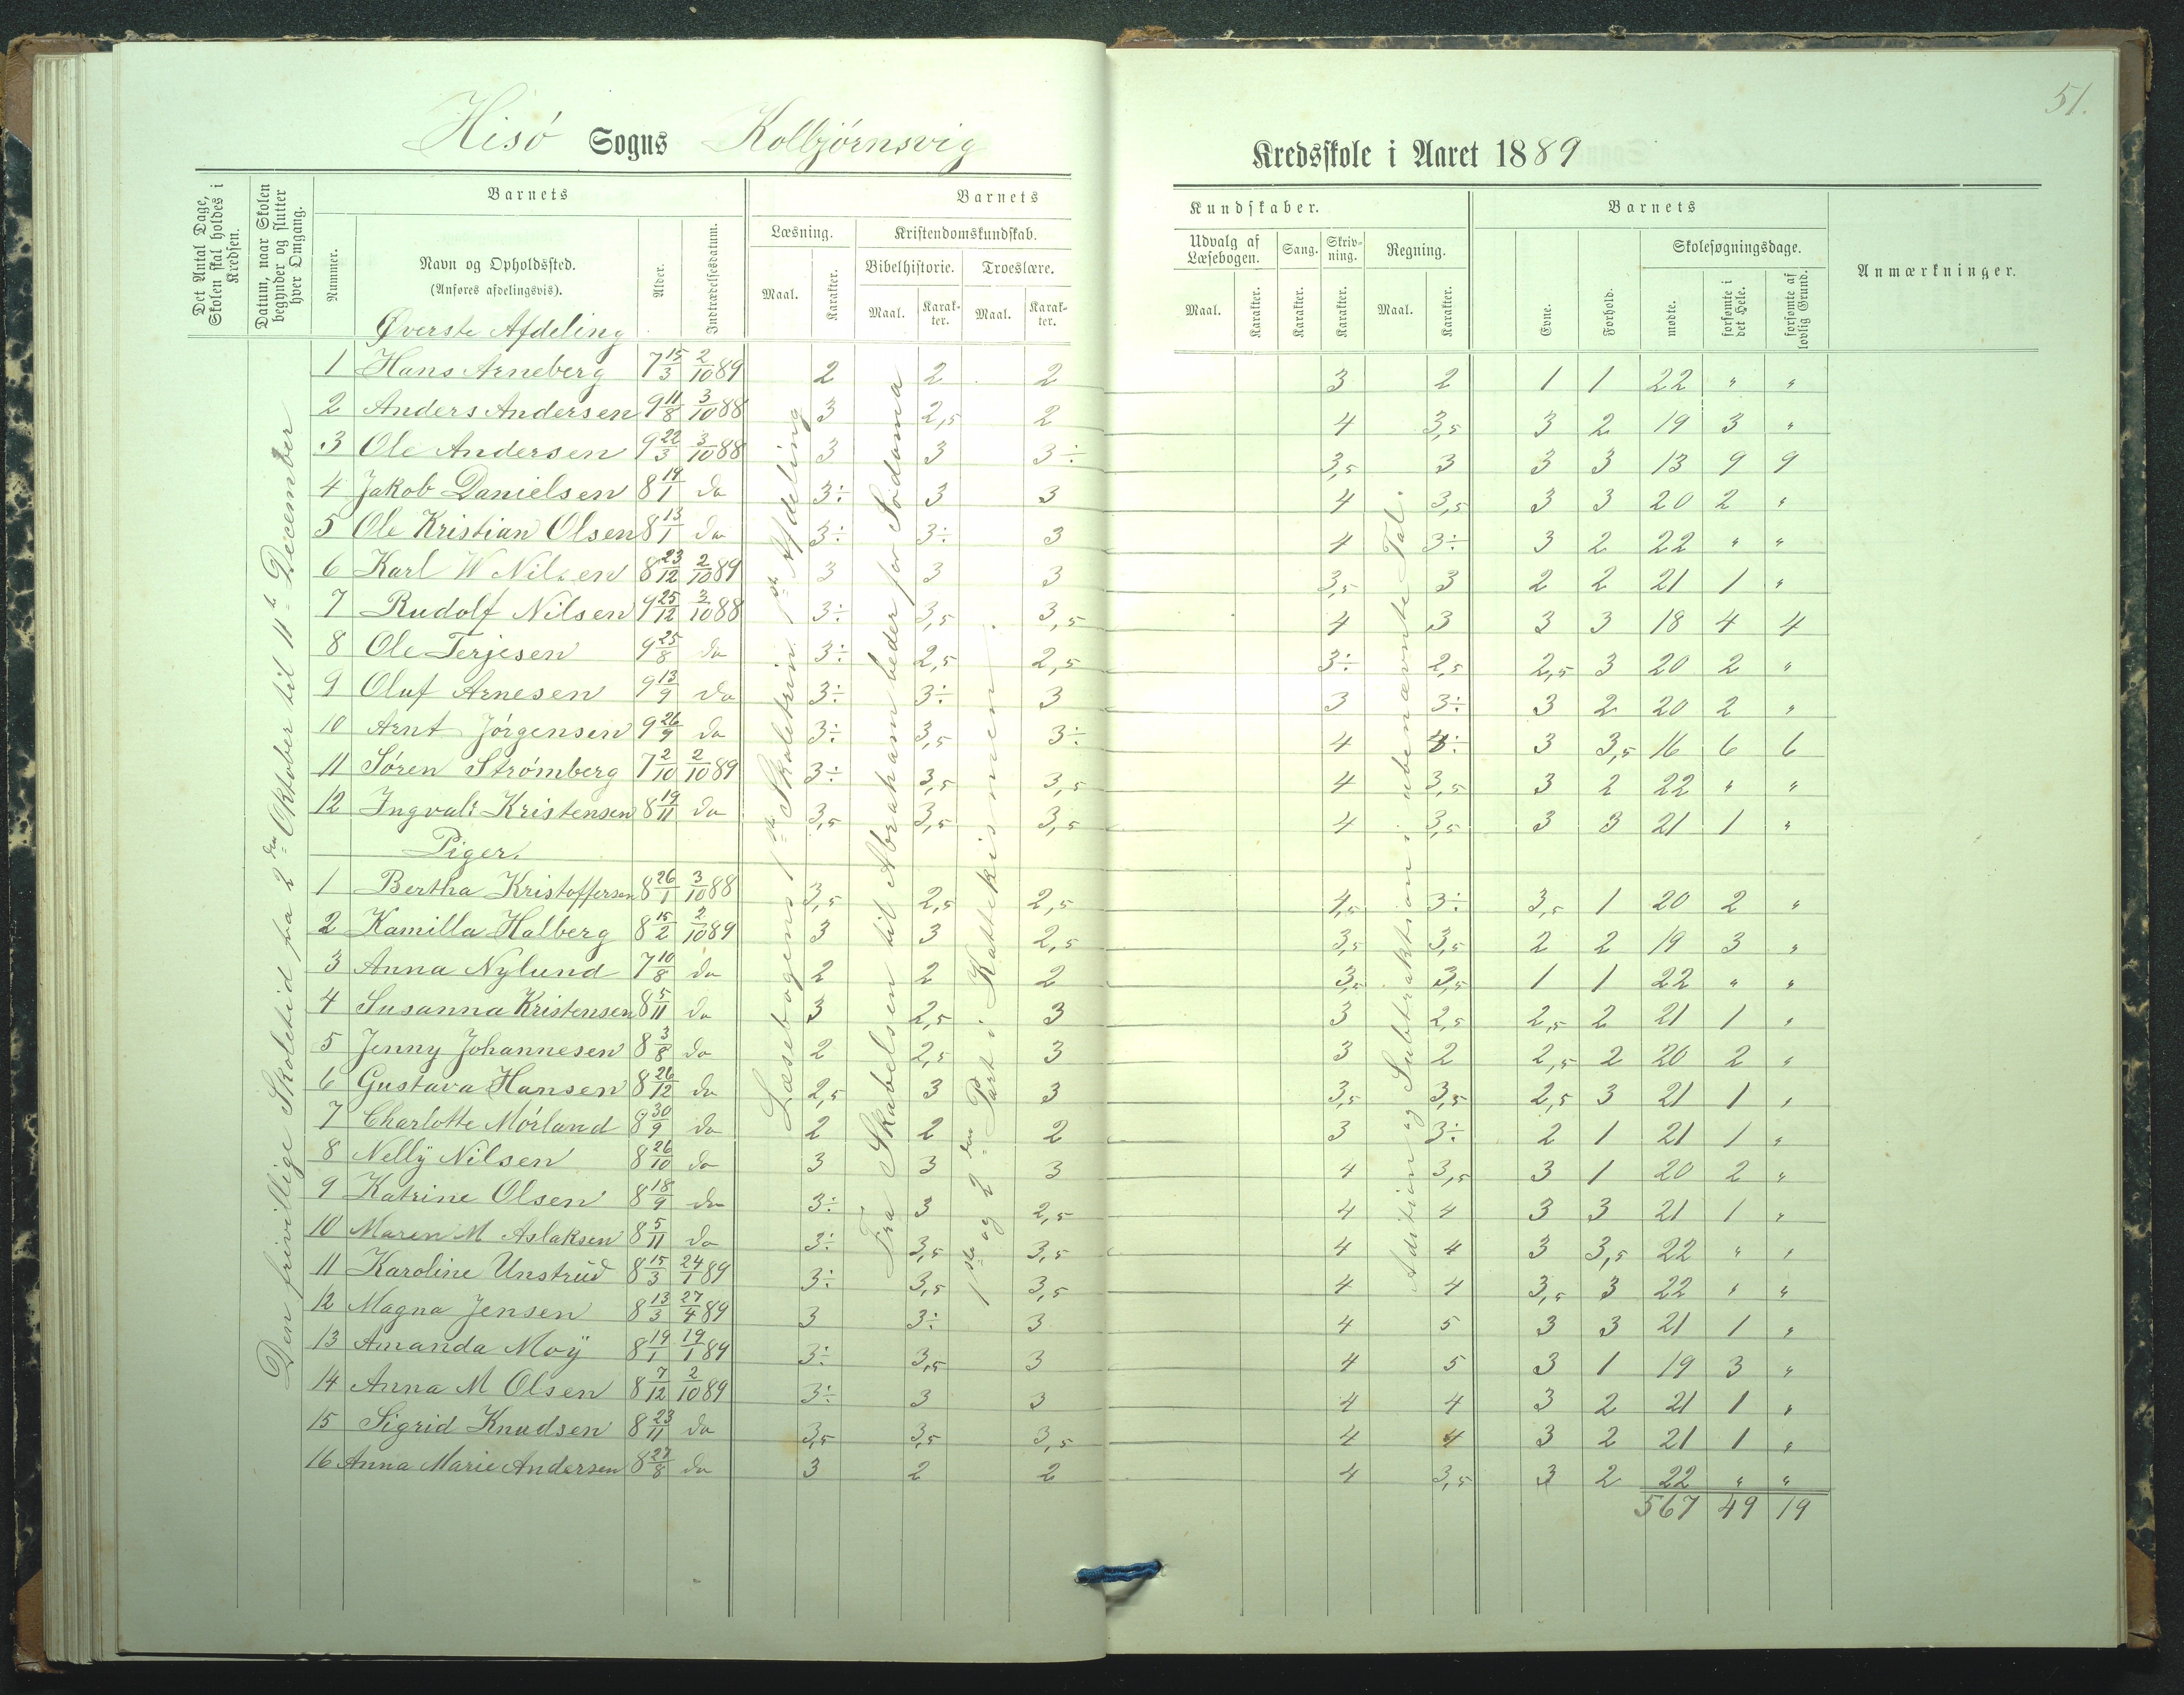 51.
Hisö Sogns Kolbjörnsvig
Kredsskole i Aaret 1889
Det Antal Dage, Skolen skal holdes i Kredsen.
Datum, naar Skolen begynder og slutter hver Omgang.
Barnets
Nummer.
Navn og Opholdssted.
(Anføres afdelingsvis).
Alder.
Indtrædelsesdatum.
Barnets
Læsning.
Maal.
Karakter.
Kristendomskundskab.
Bibelhistorie.
Maal.
Karakter.
Troeslære.
Maal.
Karakter.
Kundskaber.
Udvalg af Læsebogen.
Maal.
Karakter.
Sang.
Karakter.
Skrivning.
Karakter.
Regning.
Maal.
Karakter.
Barnets
Evne.
Forhold.
Skolesøgningsdage.
mødte.
forsømte i det Hele.
forsømte af lovlig Grund.
Anmærkninger.
Øverste Afdeling
Den frivillige Skoletid fra 2den Oktober til 11te December
Læsebogens 1ste Skoletrin 1ste Afdeling
Fra Skabelsen til Abraham beder for Sodoma
1ste og 2den Part i Kattekismen.
Adition og Subtraktion i ubenævnte Tal.
1 Hans Arneberg 7 15/3 2/10 89 2 2 2 3 2 1 1 22 " "
2 Anders Andersen 9 11/8 3/10 88 3 2,5 2 4 3,5 3 2 19 3 "
3 Ole Andersen 9 22/3 3/10 88 3 3 3÷ 3,5 3 3 3 13 9 9
4 Jakob Danielsen 8 14/1 do 3÷ 3 3 4 3,5 3 3 20 2 "
5 Ole Kristian Olsen 8 13/1 do 3÷ 3÷ 3 4 3÷ 3 2 22 " "
6 Karl W Nilsen 8 23/12 2/10 89 3 3 3 3,5 3 2 2 21 1 "
7 Rudolf Nilsen 9 25/12 3/10 88 3÷ 3,5 3,5 4 3 3 3 18 4 4
8 Ole Terjesen 9 25/8 do 3÷ 2,5 2,5 3÷ 2,5 2,5 3 20 2 "
9 Oluf Arnesen 9 13/9 do 3÷ 3÷ 3 3 3÷ 3 2 20 2 "
10 Arnt Jörgensen 9 26/9 do 3÷ 3,5 3÷ 4 3÷ 3 3,5 16 6 6
11 Sören Strömberg 7 2/10 2/10 89 3÷ 3,5 3,5 4 3,5 3 2 22 " "
12 Ingvald Kristensen 8 19/11 do 3,5 3,5 3,5 4 3,5 3 3 21 1 "
Piger.
1 Bertha Kristoffersen 8 26/1 3/10 88 3,5 2,5 2,5 4,5 3÷ 3,5 1 20 2 "
2 Kamilla Halberg 8 15/2 2/10 89 3 3 2,5 3,5 3,5 2 2 19 3 "
3 Anna Nylund 7 10/8 do 2 2 2 3,5 3,5 1 1 22 " "
4 Susanna Kristensen 8 5/11 do 3 2,5 3 3 2,5 2,5 2 21 1 "
5 Jenny Johannesen 8 3/8 do 2 2,5 3 3 2 2,5 2 20 2 "
6 Gustava Hansen 8 26/12 do 2,5 3 3 3,5 3,5 2,5 3 21 1 "
7 Charlotte Mörland 8 30/9 do 2 2 2 3 3÷ 2 1 21 1 "
8 Nellÿ Nilsen 8 26/10 do 3 3 3 4 3,5 3 1 20 2 "
9 Katrine Olsen 8 18/9 do 3÷ 3 2,5 4 4 3 3 21 1 "
10 Maren M Aslaksen 8 5/11 do 3÷ 3,5 3,5 4 4 3 3,5 22 " "
11 Karoline Unstrud 8 15/3 24/1 89 3÷ 3,5 3,5 4 4 3,5 3 22 " "
12 Magna Jensen 8 13/3 27/4 89 3 3÷ 3 4 5 3 3 21 1 "
13 Amanda Moÿ 8 19/1 19/1 89 3÷ 3,5 3 4 5 3 1 19 3 "
14 Anna M Olsen 8 7/12 2/10 89 3÷ 3 3 4 4 3 2 21 1 "
15 Sigrid Knudsen 8 23/11 do 3,5 3,5 3,5 4 4 3 2 21 1 "
16 Anna Marie Andersen 8 27/8 do 3 2 2 4 3,5 3 2 22 " "
567 49 19